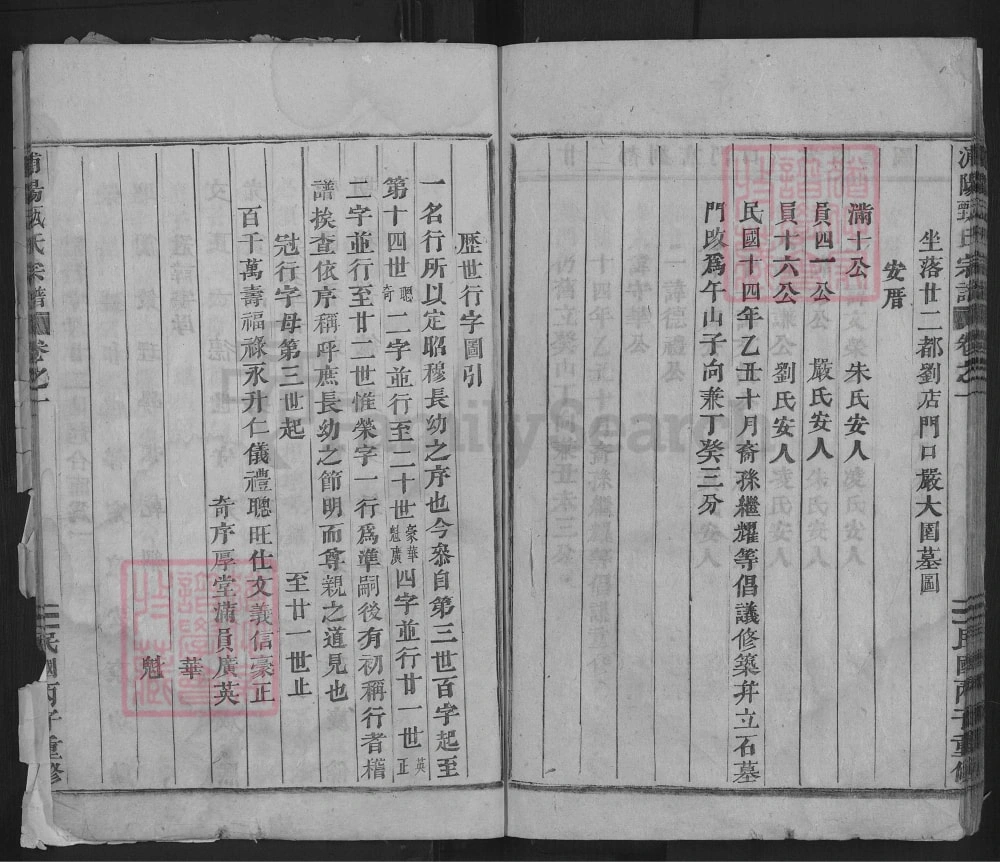 浦陽甄氏宗譜 卷之一 民國丙子重修
坐落廿二都劉店門口嚴大園墓圖
安厝
滿十公 朱氏安人
員四一公 嚴氏安人
員十六公 劉氏安人
民國十四年乙丑十月裔孫繼耀等倡議修築幷立石墓
門改爲午山子向兼丁癸三分
歷世行字圖引
一名行所以定昭穆長幼之序也今叅自第三世百字起至
第十四世聰奇二字並行至二十世豪華魁廣四字並行廿一世英正
二字並行至廿二世惟榮字一行爲準嗣後有初稱行者稽
譜挨查依序稱呼庶長幼之節明而尊親之道見也
冠行字母第三世起 至廿一世止
百千萬壽福祿永升仁儀禮聰旺仕文義信豪正
奇序厚堂滿員廣英
華
魁
浦陽甄氏宗譜 卷之一 民國丙子重修
FamilySearch